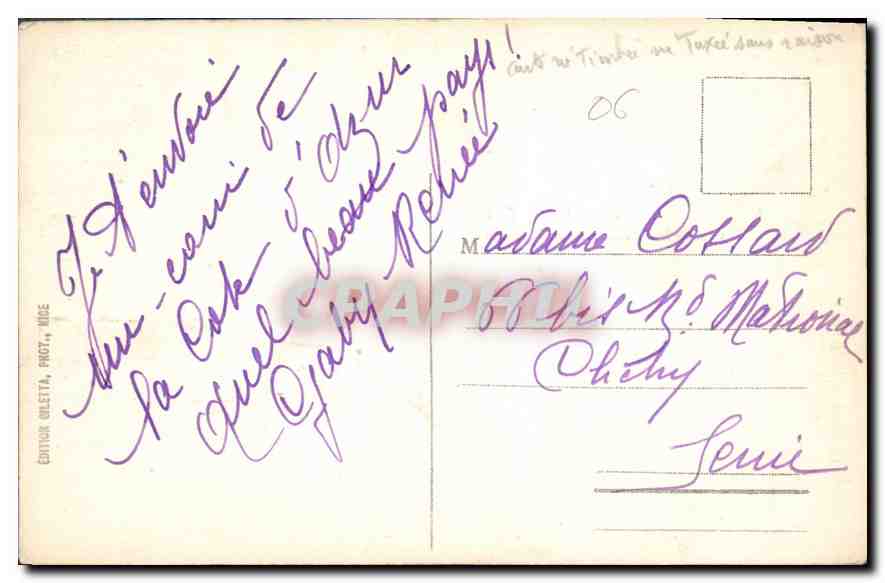 Je t'envoie
un coin de
la Cote d'Azur
quel beau pays!
Gaby Renée
carte ni Timbrée ni Taxée sans raison
06
Madame Cossard
66 bis Bd. National
Clichy
Seine
ÉDITION GILETTA, PHOT., NICE
CRAPHIL